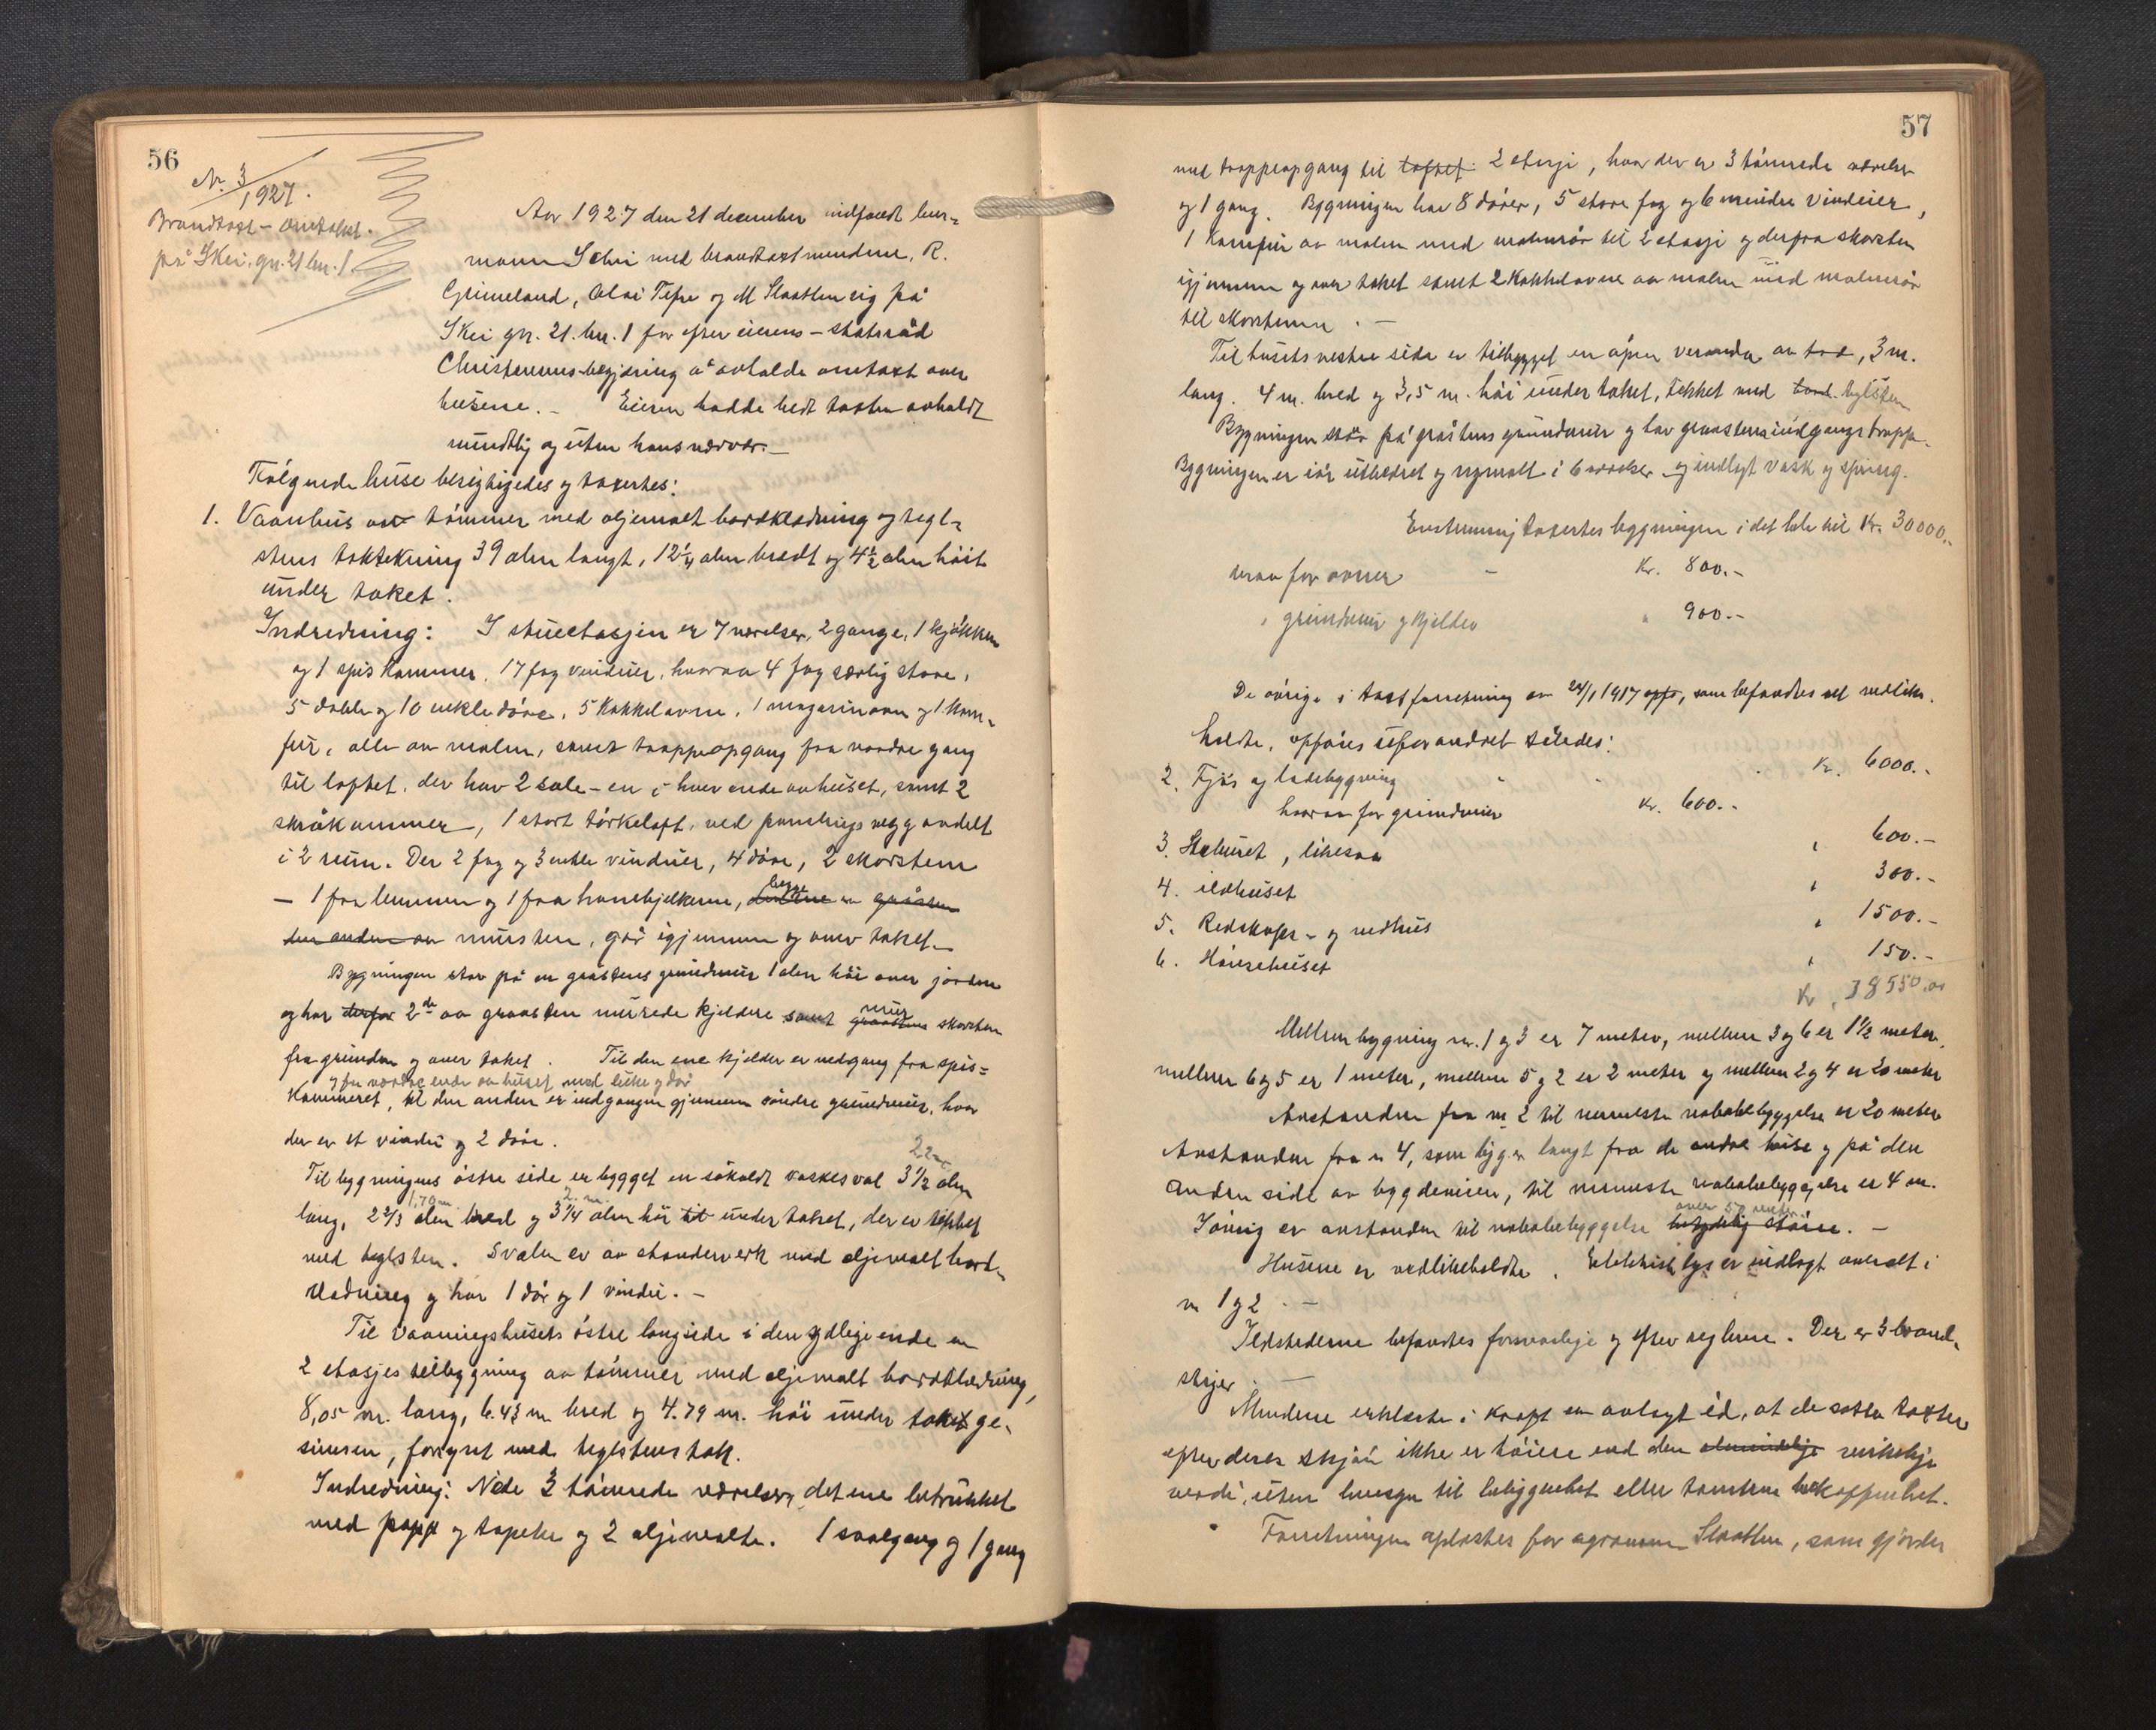 56
Nr. 3
1927.
Brandtaxt - omtakst.
på Skei, gn. 21 bn. 1
Aar 1927 den 21 december indfandt lens-
mann Schei med brandtaxtmændene, R.
Grimeland, Olai Tefre og M Slaatten sig på
Skei gn. 21. bn. 1 for efter eierens - statsråd
Christensens begjæring å avholde omtaxt over
husene. - Eieren hadde bedt taxten avholdt
mundtlig og uten hans nærvær. -
Følgende huse besigtigedes og taxertes:
1. Vaanhus av tømmer med oljemalt bordklædning og tegl-
stens taktekning 39 alen langt, 12 1/4 alen bredt og 4 1/2 alen høit
under taket.
Indredning: I stueetasjen er 7 værelser, 2 gange, 1 kjøkken
og 1 spiskammer, 17 fag vinduer, hvorav 4 fag særlig store,
5 doble og 10 enkle døre, 5 kakkelovne, 1 magasinovn og 1 kom-
fur, alle av malm, samt trappeopgang fra nordre gang
til loftet, der har 2 sale - en i hver ende av huset, samt 2
skråkammer, 1 stort tørkeloft, ved panelingsvegg avdelt
i 2 rum. Der 2 fag og 3 enkle vinduer, 4 døre, 2 skorstene
- 1 fra lemmen og 1 fra hanebjelkerne, den ene begge av gråsten
den anden av mursten, går igjennem og over taket. -
Bygningen står på en gråstens grundmur 1 alen høi over jorden
og har derfor 2de av graasten murede kjeldere samt graastens mur skorsten
fra grunden og over taket. Til den ene kjelder er nedgang fra spis-
og fra nordre ende av huset med luke og dør
kammeret, til den anden er indgangen gjennem søndre grundmur, hvor
der er et vindu og 2 døre.
2.2 m
Til bygningens østre side er bygget en såkaldt vaskesval 3 1/2 alen
1,70 m 2. m.
lang, 2 2/3 alen bred og 3 1/4 alen høi til under taket, der er tekket
med teglsten. Svalen er av standerverk med oljemalt bord-
klædning og har 1 dør og 1 vindu. -
Til vaaningshusets østre langside i den sydlige ende en
2 etasjes tilbygning av tømmer med oljemalt bordklædning,
8,05 m. lang, 6.43 m bred og 4.79 m. høi under taket ge-
simsen, forsynt med teglstens tak.
Indredning: Nede 3 tømrede værelser, det ene betrukket
med papp og tapeter og 2 oljemalte. 1 svalgang og 1 gang
57
med trappeopgang til loftet 2 etasje, hvor der er 3 tømrede værelser
og 1 gang. Bygningen har 8 dører, 5 store fag og 6 mindre vinduer,
1 komfur av malm med malmrør til 2 etasje og derfra skorsten
igjennem og over taket samt 2 kakkelovne av malm med malmrør
til skorstenene. -
Til husets vestre side er tilbygget en åpen veranda av træ, 3 m.
lang. 4 m. bred og 3,5 m. høi under taket, tekket med bord teglsten
Bygningen står på gråstens grundmur og har graastens indgangstrappe.
Bygningen er iår utbedret og nymalt i 6 værelser og indlagt vask og spring.
Enstemmig taxertes bygningen i det hele til Kr. 30000.-
herav for ovner - Kr. 800.-
" grundmur og kjelder " 900.-
De øvrige i taxtforretning av 24/1 1917 opfø, som befandtes vel vedlike-
holdte, opføres uforandret således:
2. Fjøs og ladebygning Kr. 6000.-
hvorav for grundmur kr. 600.-
3. Stabburet, likesaa " 600.-
4. ildhuset " 300.-
5. Redskaps- og vedhus " 1500.-
6. Hønsehuset " 150.-
Kr. 38550.00
Mellem bygning nr. 1 og 3 er 7 meter, mellem 3 og 6 er 1 1/2 meter,
mellem 6 og 5 er 1 meter, mellem 5 og 2 er 2 meter og mellem 2 og 4 er 20 meter
Avstanden fra nr 2 til nærmeste nabobebyggelse er 20 meter
Avstanden fra nr 4, som ligger langt fra de andre huse og på den
anden side av bygdeveien, til nærmeste nabobebyggelse er 4 m.
over 50 meter
Iøvrig er avstanden til nabobebyggelse betydelig større. -
Husene er vedlikeholdte. Elektrisk lys er indlagt overalt i
nr 1 og 2. -
Ildstederne befandtes forsvarlige og efter reglerne. Der er 3 brand-
stiger. -
Mændene erklærte i kraft av avlagt ed, at de satte taxter
efter deres skjøn ikke er høiere end den almindelige virkelige
verdi, uten hensyn til beliggenhet eller tomtens beskaffenhet.
Forretningen oplæstes for agronom Slaatten, som gjorde